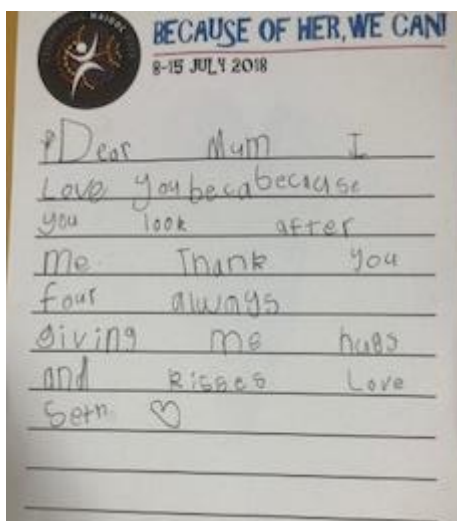 NAIDOC
BECAUSE OF HER, WE CAN!
8-15 JULY 2018
Dear Mum I
Love you beca because
you look after
me. Thank you
four always
giving me hugs
and kisses Love
Seth ♡